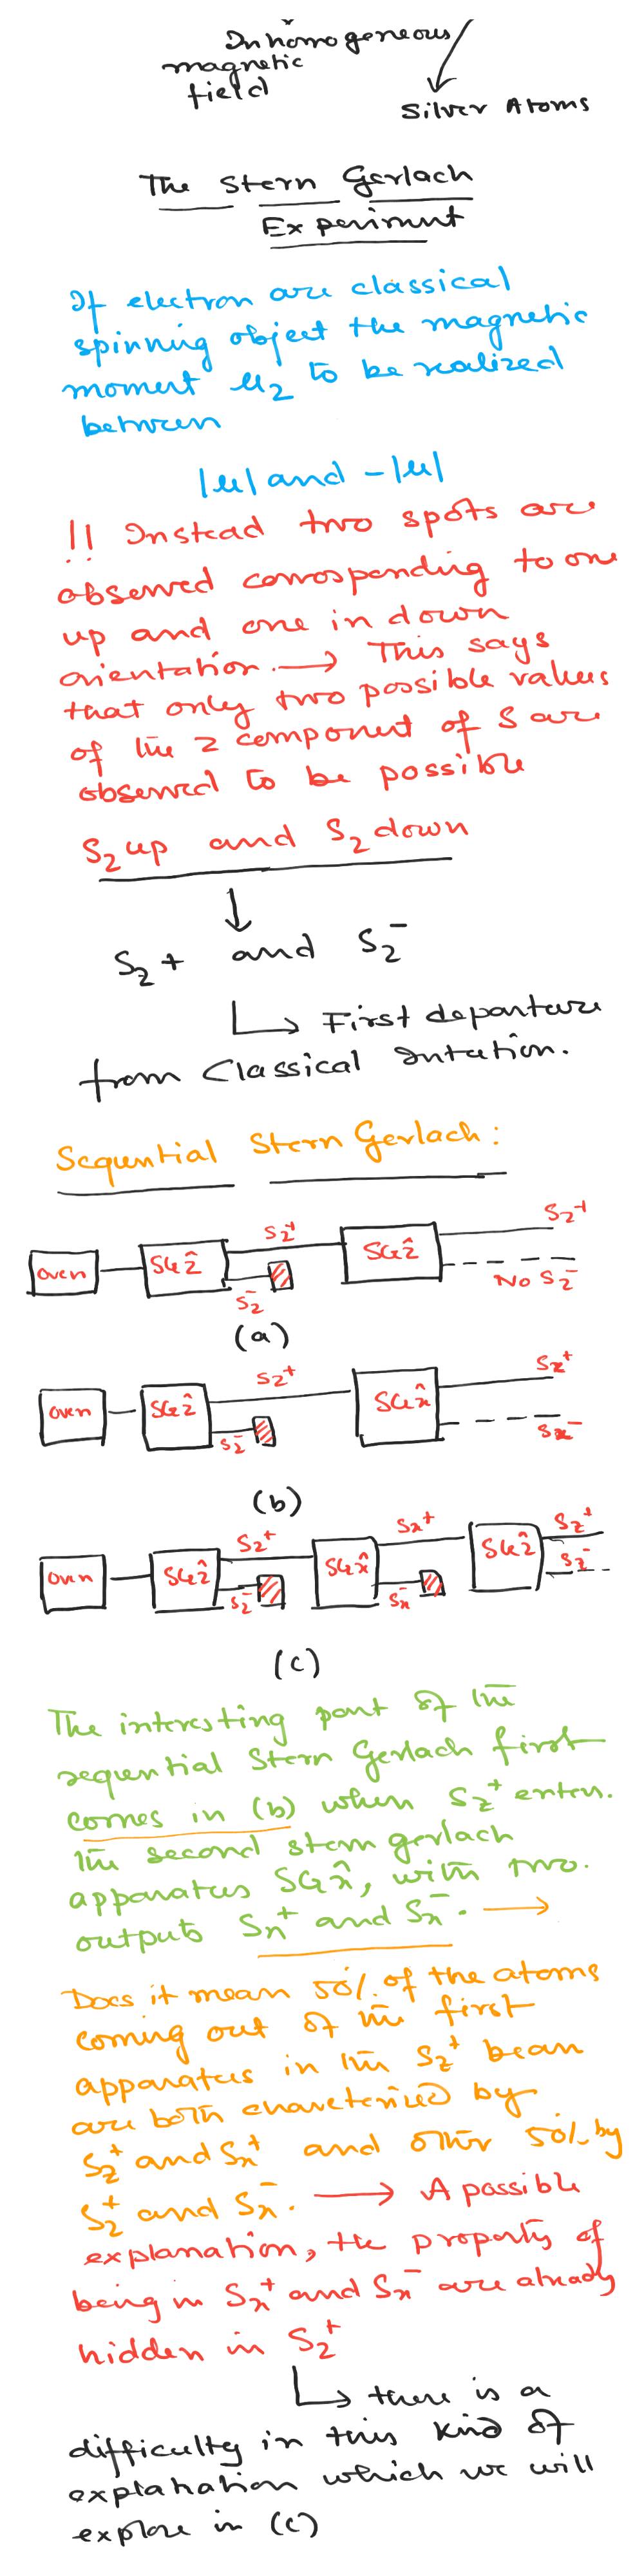 Inhomogeneous
magnetic
field
Silver Atoms
The Stern Gerlach
Experiment
If electron are classical
spinning object the magnetic
moment μz to be realized
between
|μ| and -|μ|
!! Instead two spots are
observed corrosponding to one
up and one in down
orientation. → This says
that only two possible values
of the z component of S are
observed to be possible
Sz up and Sz down
↓
Sz+ and Sz-
↳ First departure
from Classical Intution.
Sequntial Stern Gerlach:
oven SGẑ Sz+ Sz- SGẑ Sz+ No Sz-
(a)
oven SGẑ Sz+ Sz- SGx̂ Sx+ Sx-
(b)
oven SGẑ Sz+ Sz- SGx̂ Sx+ Sx- SGẑ Sz+ Sz-
(c)
The interesting part of the
sequential Stern Gerlach first
comes in (b) when Sz+ enters.
the second stern gerlach
apparatus SGx̂, with two.
outputs Sx+ and Sx-. →
Does it mean 50% of the atoms
coming out of the first
apparatus in the Sz+ beam
are both charcterized by
Sz+ and Sx+ and other 50% by
Sz+ and Sx-. → A possible
explanation, the property of
being in Sx+ and Sx- are already
hidden in Sz+
↳ there is a
difficulty in this kind of
explanation which we will
explore in (c)